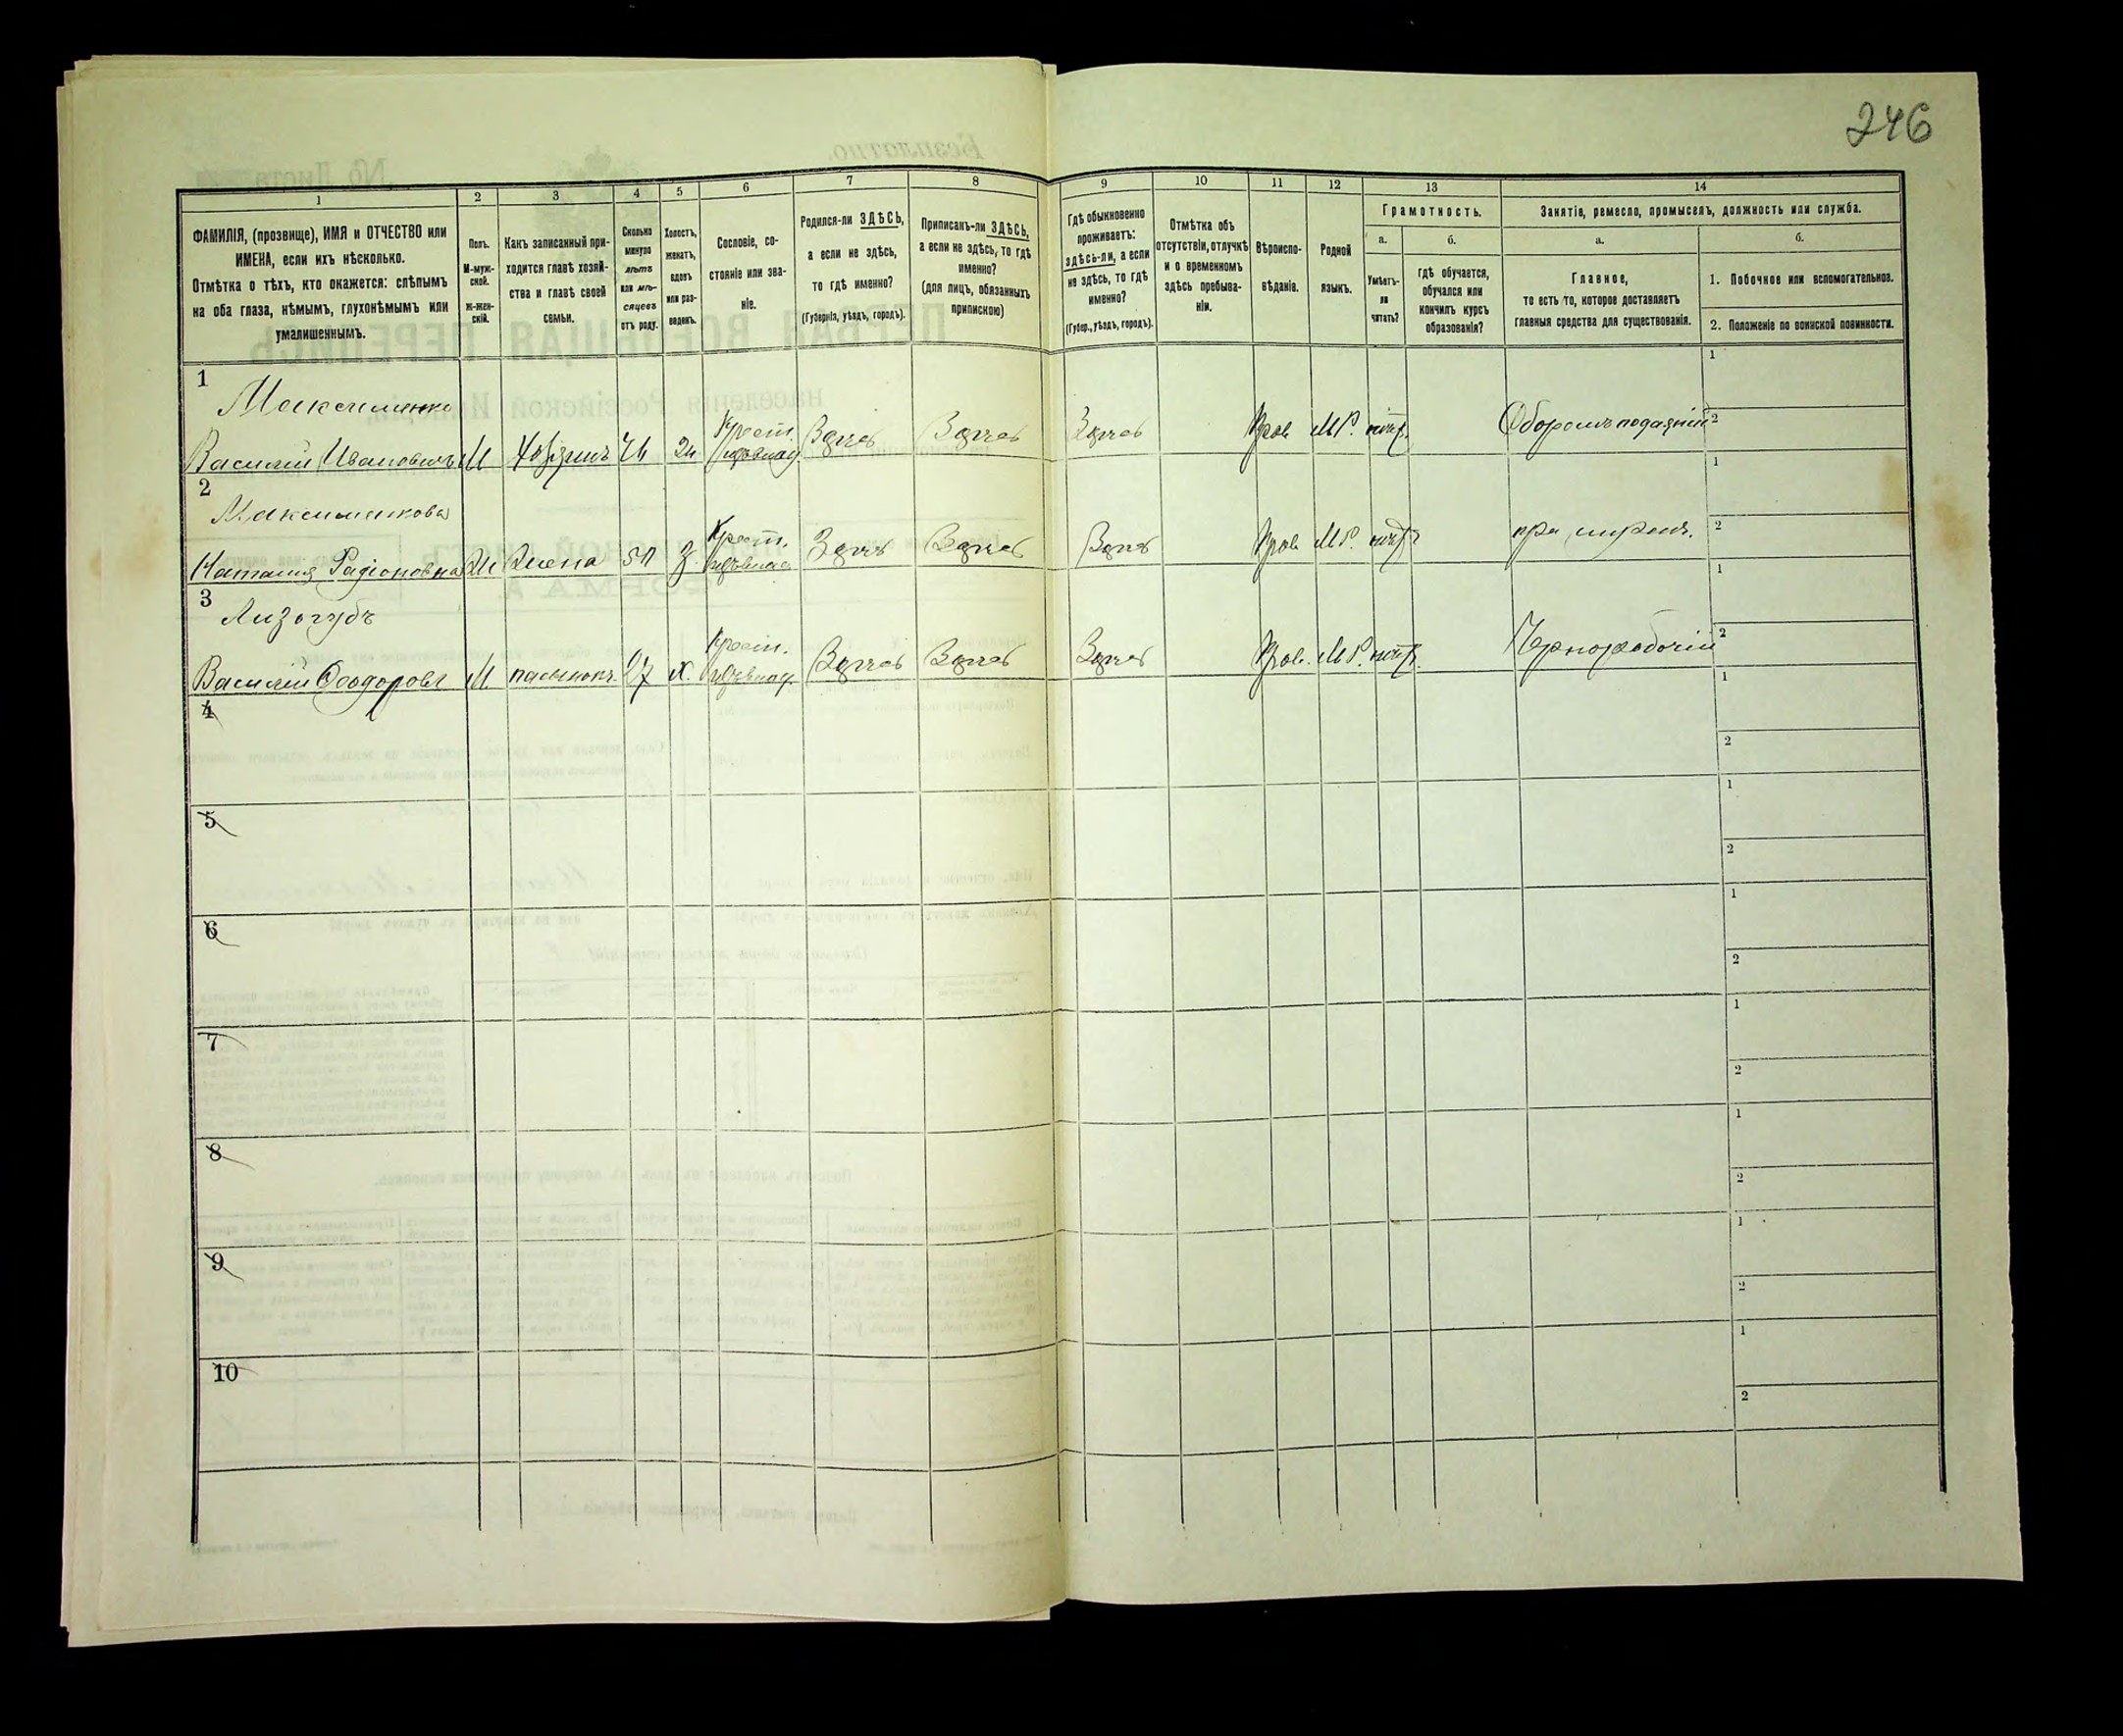 246
1
2
3
4
5
6
7
8
9
10
11
12
13
14
ФАМИЛІЯ, (прозвище), ИМЯ и ОТЧЕСТВО или
ИМЕНА, если ихъ нѣсколько.
Отмѣтка о тѣхъ, кто окажется: слѣпымъ
на оба глаза, нѣмымъ, глухонѣмымъ или
умалишеннымъ.
Полъ.
М-муж-
ской.
Ж-жен-
скій.
Какъ записанный при-
ходится главѣ хозяй-
ства и главѣ своей
семьи.
Сколько
минуло
лѣтъ
или мѣ-
сяцевъ
отъ роду.
Холостъ,
женатъ,
вдовъ
или раз-
веденъ.
Сословіе, со-
стояніе или зва-
ніе.
Родился-ли ЗДѢСЬ,
а если не здѣсь,
то гдѣ именно?
(Губернія, уѣздъ, городъ).
Приписанъ-ли ЗДѢСЬ,
а если не здѣсь, то гдѣ
именно?
(для лицъ, обязанныхъ
припискою)
Гдѣ обыкновенно
проживаетъ:
здѣсь-ли, а если
не здѣсь, то гдѣ
именно?
(Губер., уѣздъ, городъ).
Отмѣтка объ
отсутствіи, отлучкѣ
и о временномъ
здѣсь пребыва-
ніи.
Вѣроиспо-
вѣданіе.
Родной
языкъ.
Грамотность.
а.
Умѣетъ-
ли
читать?
б.
гдѣ обучается,
обучался или
кончилъ курсъ
образованія?
Занятіе, ремесло, промыселъ, должность или служба.
а.
Главное,
то есть то, которое доставляетъ
главныя средства для существованія.
б.
1. Побочное или вспомогательное.
2. Положеніе по воинской повинности.
1
Максименко
Василій Ивановичъ М Хозяинъ Крест. Здѣсь Здѣсь Здѣсь Прав. М.Р. нѣтъ
1
2
2
Максименкова
Наталия Радіоновна Ж Жена Крест. Здѣсь Здѣсь Здѣсь Прав. М.Р. нѣтъ при
1
2
3
Лизогубъ
Василій Ѳеодоровъ М. пасынокъ 27 х. Крест. Здѣсь Здѣсь Здѣсь Прав. М.Р. нѣтъ Чернорабочій
1
2
4
1
2
5
1
2
6
1
2
7
1
2
8
1
2
9
1
2
10
1
2